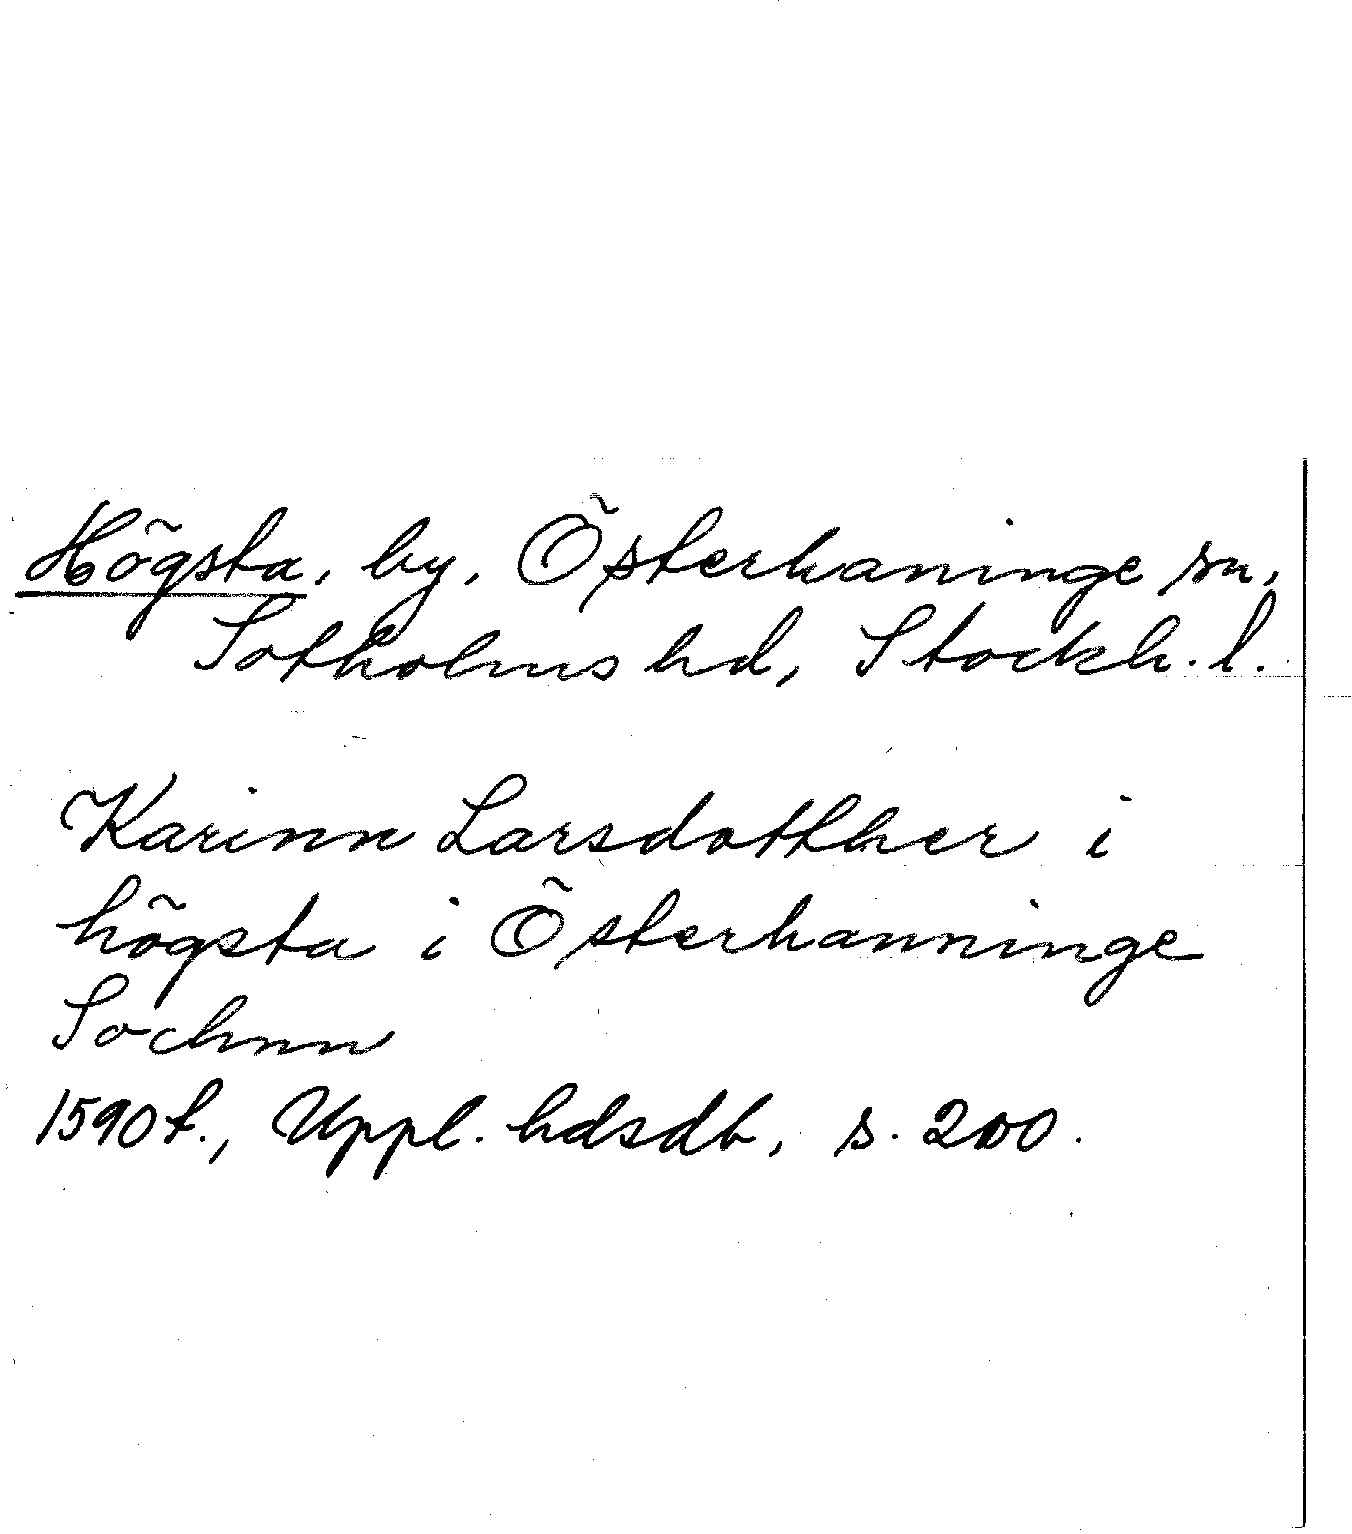 Högsta, by, Österhaninge sn,
Sotholms hd, Stockh. l.
Karinn Larsdotther i
högsta i Österhanninge
Sochnn
1590 t., Uppl. hdsdb, s. 200.